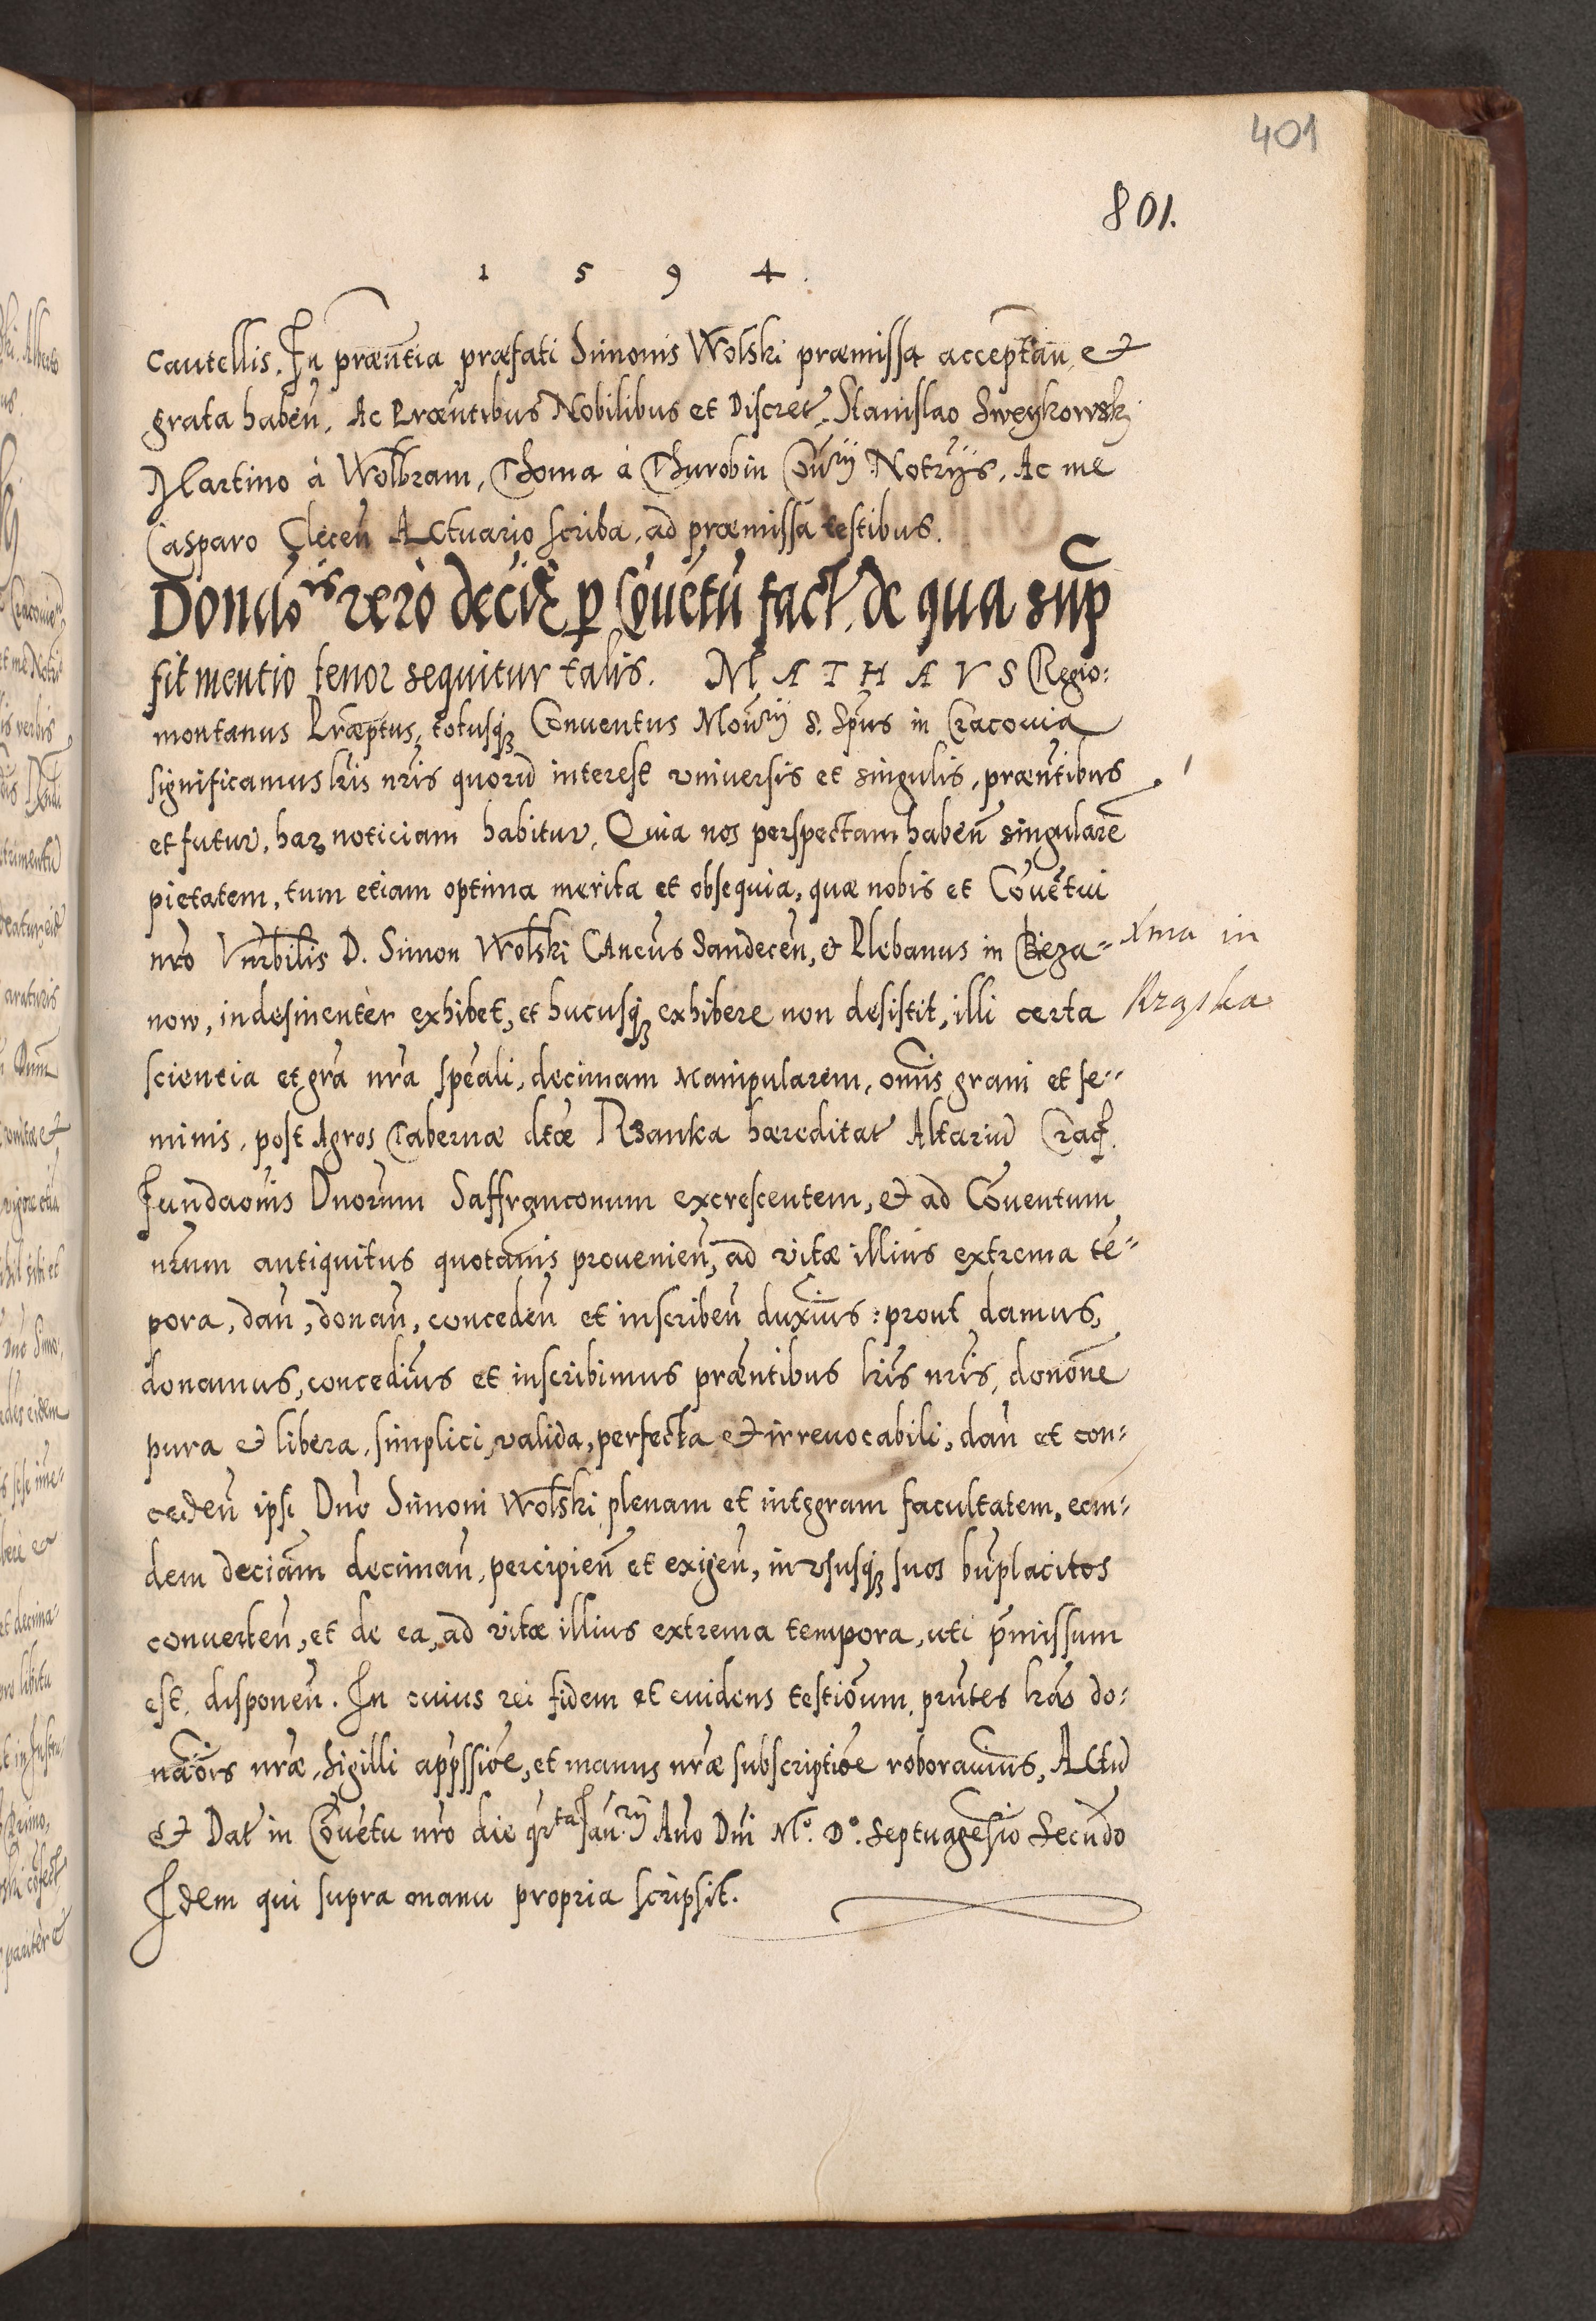 401
801.
1 5 9 4.
cautellis. In praentia praefati Simonis Wolski praemissa acceptan, et
grata haben, Ac Praentibus Nobilibus et Discret, Stanislao Sweykowsky
Martino à Wolbram, Thoma à Thurobin Conrij Notrijs, Ac me
Casparo Clecen Actuario scriba, ad praemissa testibus.
Dondois vero decim p Conuetu fact, de qua sup
fit mentio tenor sequitur talis. MATHAEVS Regio:
montanus Praeptus, totusq Conuentus Monrij S. Spus in Cracouia
significamus lris nris quorum interest vniuersis et singulis, praentibus
et futur, har noticiam habitur, Quia nos perspectam haben singulare
pietatem, tum etiam optima merita et obsequia, quae nobis et Conuetui
nro Vnrbilis D. Simon Wolski CAncus Sandecen, et Plebanus in Bieza=
now, indesinentèr exhibet, et hucusq exhibere non desistit, illi certa
Xma in
Krzyska
scientia et gra nra speali, decimam Manipularem, omis grani et se=
minis, post Agros Tabernae dtae Rzanka haereditat Altariu Crac.
Fundaonis Dnorum Saffranconum excrescentem, et ad Conuentum
nrum antiquitus quotanis prouenien, ad vitae illius extrema te=
pora, dan, donan, conceden et inscriben duximus: prout damus,
donamus, concedimus et inscribimus praentibus lris nris, donone
pura et libera, simplici, valida, perfecta et irreuocabili, dan et con=
ceden ipsi Dno Simoni Wolski plenam et integram facultatem, eam=
dem deciam deciman, percipien et exigen, in vsusq suos bnplacitos
conuerten, et de ea, ad vitae illius extrema tempora, uti pmissum
est, disponen. In cuius rei fidem et euidens testioum, pntes lras do=
naois nrae, Sigilli appssioe, et manus nrae subscriptioe roborauimus, Actu
et Dat in Conuetu nro die qrta Janrij Ano Dni Mo. Do. Septuagesio Secundo
Idem qui supra manu propria scripsit.